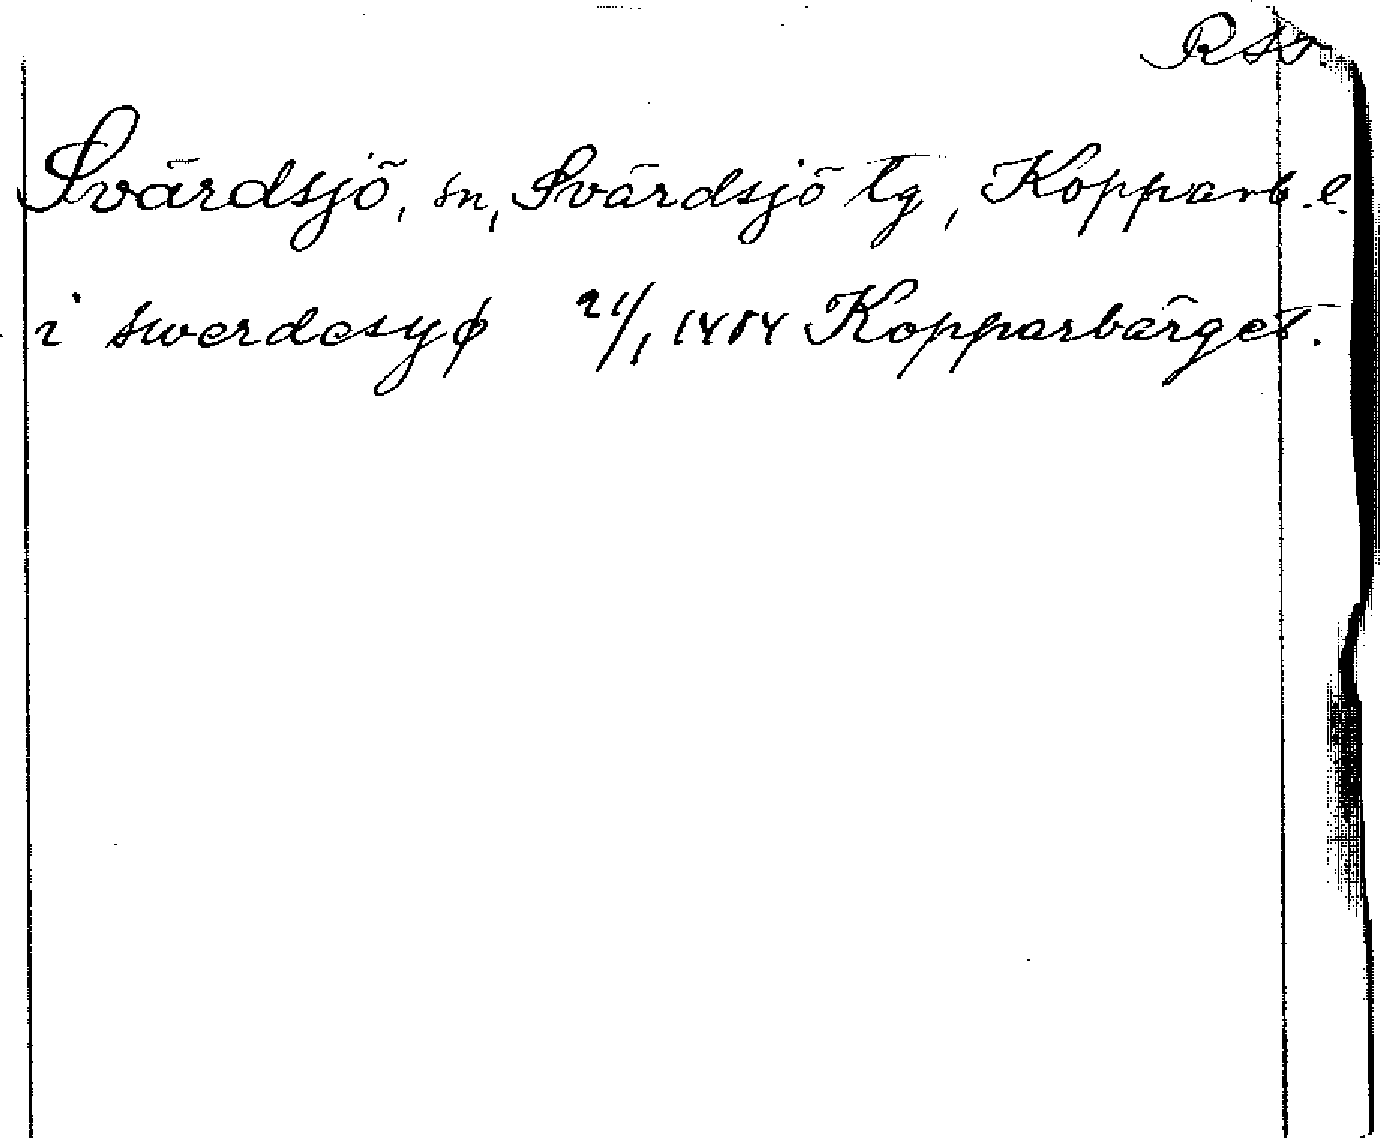 Svärdsjö, sn, Svärdsjö tg, Kopparb. l.
i swerdesyø Kopparbärget.